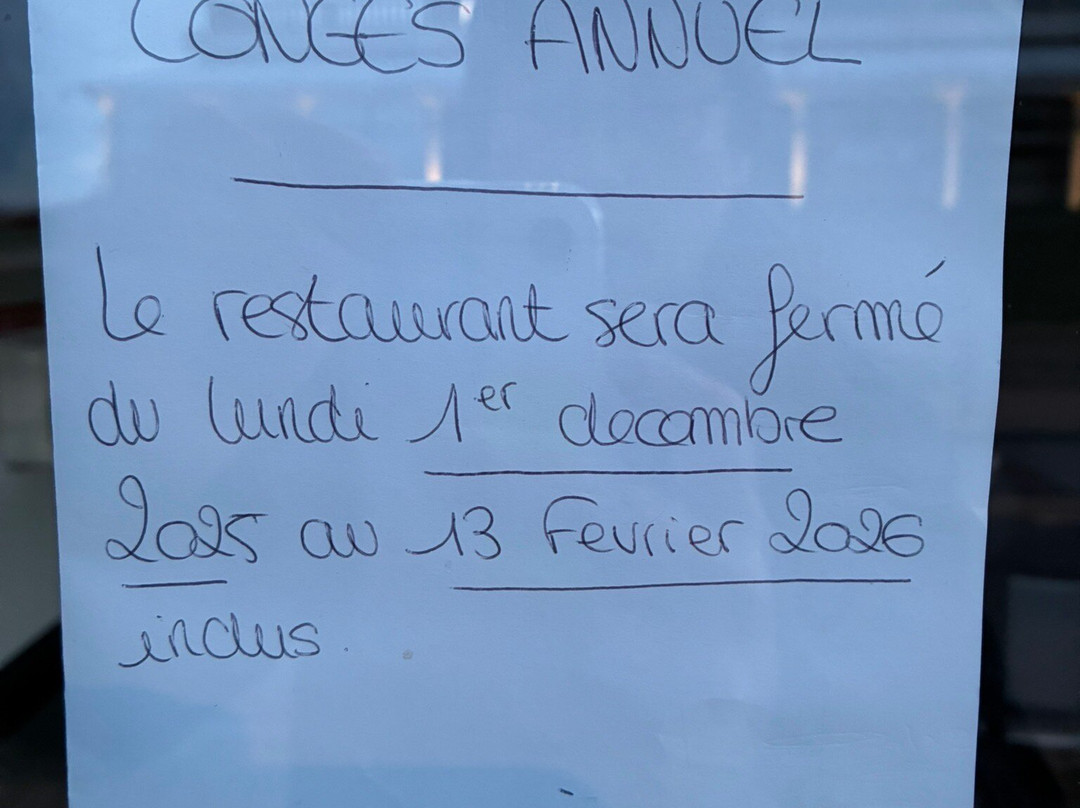 CONGÉS ANNUEL
Le restaurant sera fermé
du lundi 1er decembre
2025 au 13 Fevrier 2026
inclus.